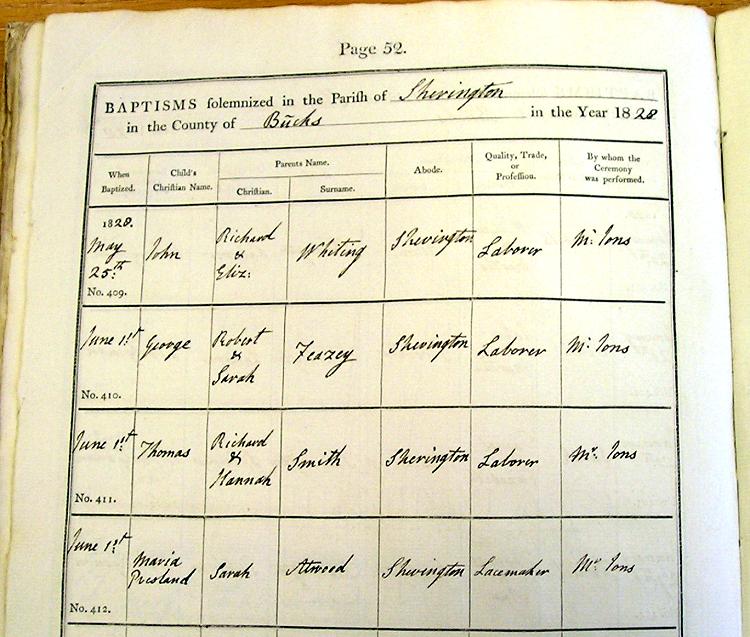 Page 52.
BAPTISMS solemnized in the Parish of Sherington
in the County of Bucks in the Year 1828
When Baptized. Child's Christian Name. Parents Name. Christian. Surname. Abode. Quality, Trade, or Profession. By whom the Ceremony was performed.
1828. May 25.th No. 409. John Richard & Eliz: Whiting Sherington Laborer Mr. Ions
June 1st No. 410. George Robert & Sarah Feazey Sherington Laborer Mr. Ions
June 1st No. 411. Thomas Richard & Hannah Smith Sherington Laborer Mr. Ions
June 1st No. 412. Maria Presland Sarah Atwood Sherington Lacemaker Mr. Ions